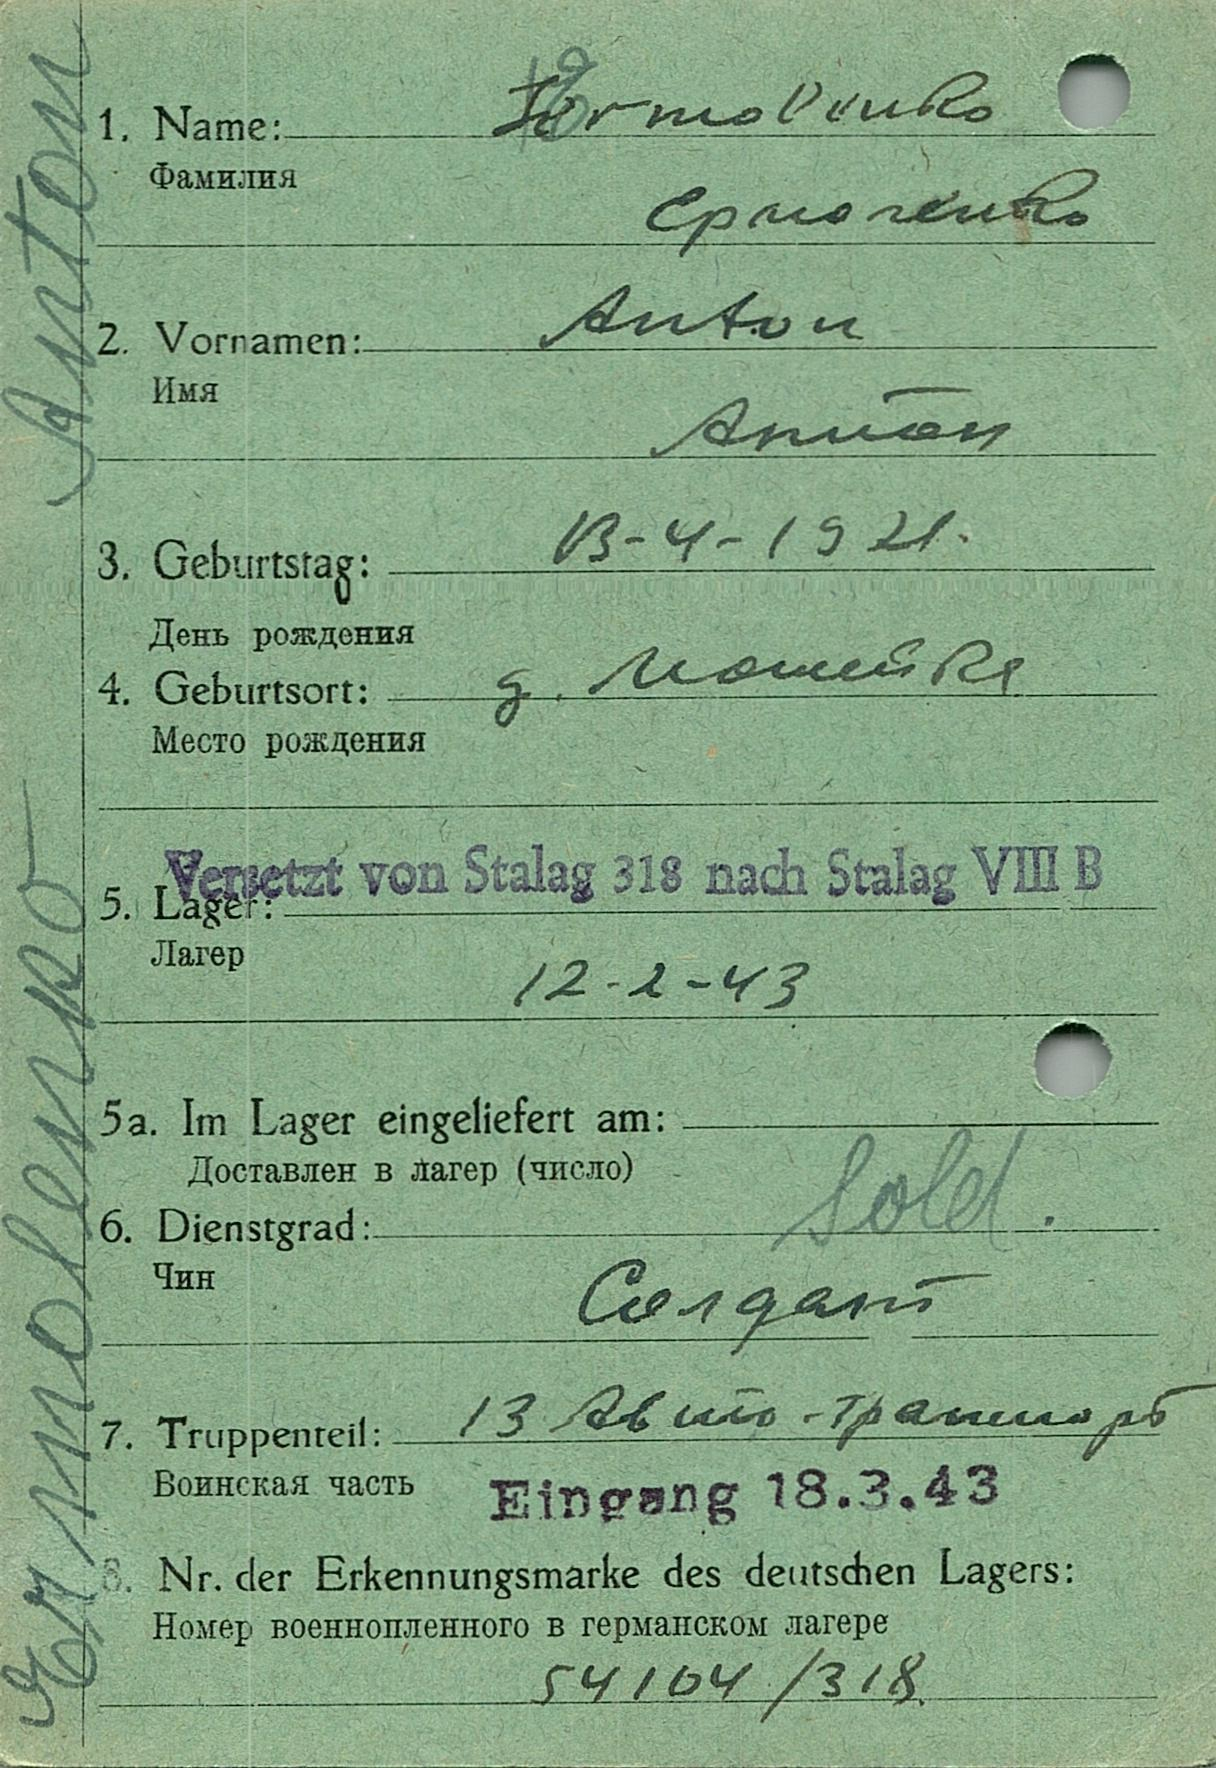 1. Name: Jermolenko
Фамилия
Ермоленко
2. Vornamen: Anton
Имя
Антон
3. Geburtstag: 13-4-1921.
День рождения
4. Geburtsort: д.
Место рождения
Versetzt von Stalag 318 nach Stalag VIII B
5. Lager:
Лагер
12-2-43
5a. Im Lager eingeliefert am:
Доставлен в лагер (число)
6. Dienstgrad: Sold.
Чин
Солдат
7. Truppenteil: 13 Авто-транспорт
Воинская часть
Eingang 18.3.43
8. Nr. der Erkennungsmarke des deutschen Lagers:
Номер военнопленного в германском лагере
54104/318
Ermolenko Anton